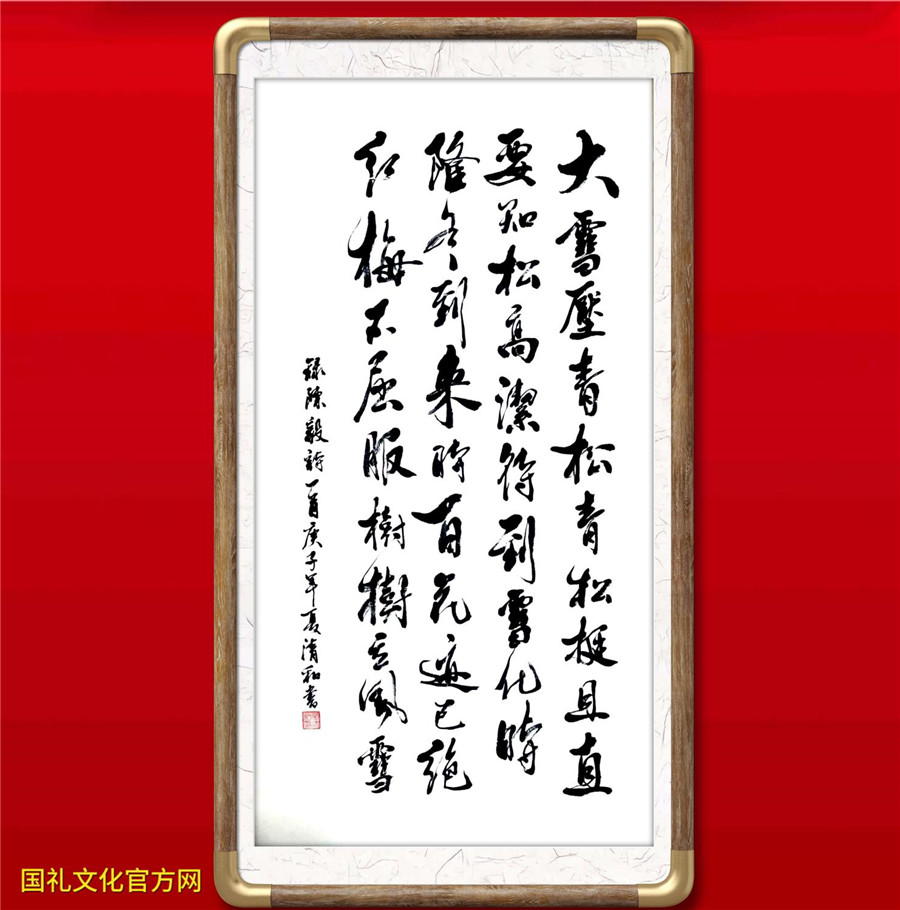 大雪壓青松青松挺且直
要知松高潔待到雪化時
隆冬到来時百花迹已絶
红梅不屈服樹樹立風雪
録陳毅詩一首庚子年夏清和書
国礼文化官方网